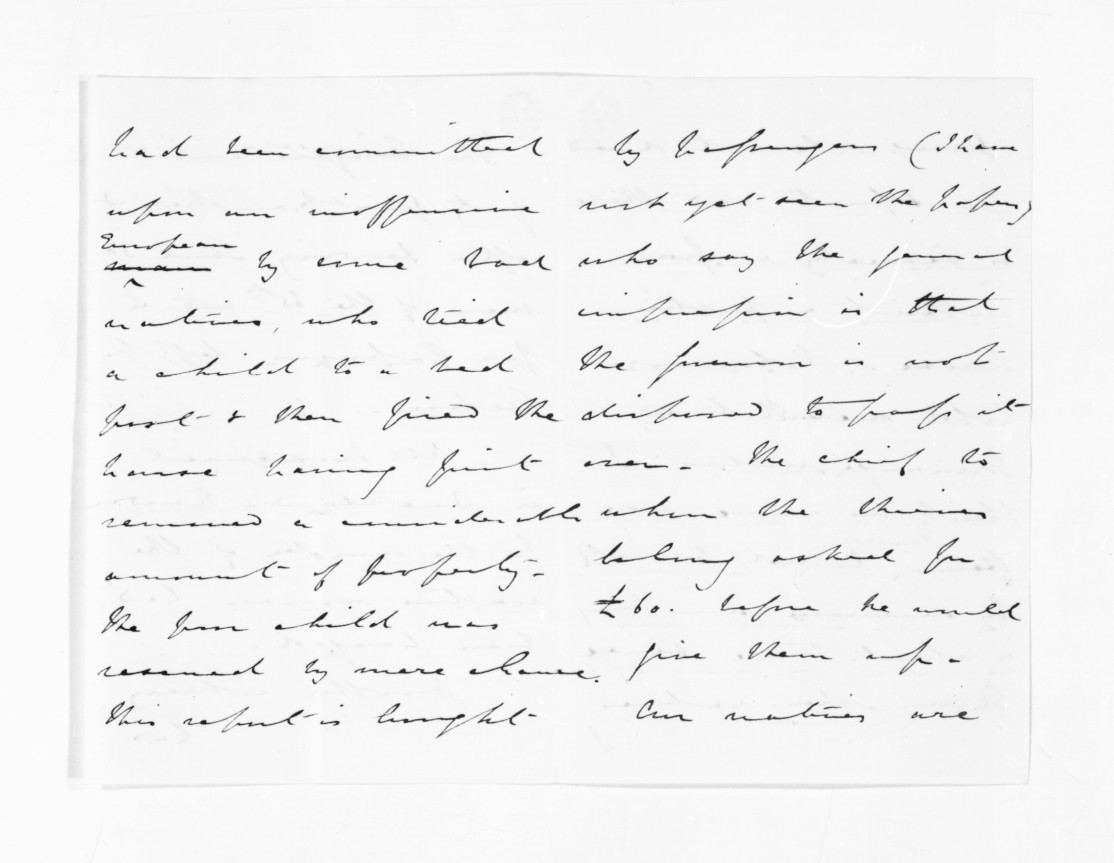 had been committed
upon an inoffensive
European
man by some bad
natives, who tied
a child to a bed
post & then fired the
house having first
removed a considerable
amount of property -
The poor child was
rescued by mere chance.
This report is brought
by passengers (I have
not yet seen the papers)
who say the general
impression is that
the governor is not
disposed to pass it
over - The chief to
whom the thieves
belong asked for
£60. before he would
give them up -
Our natives are